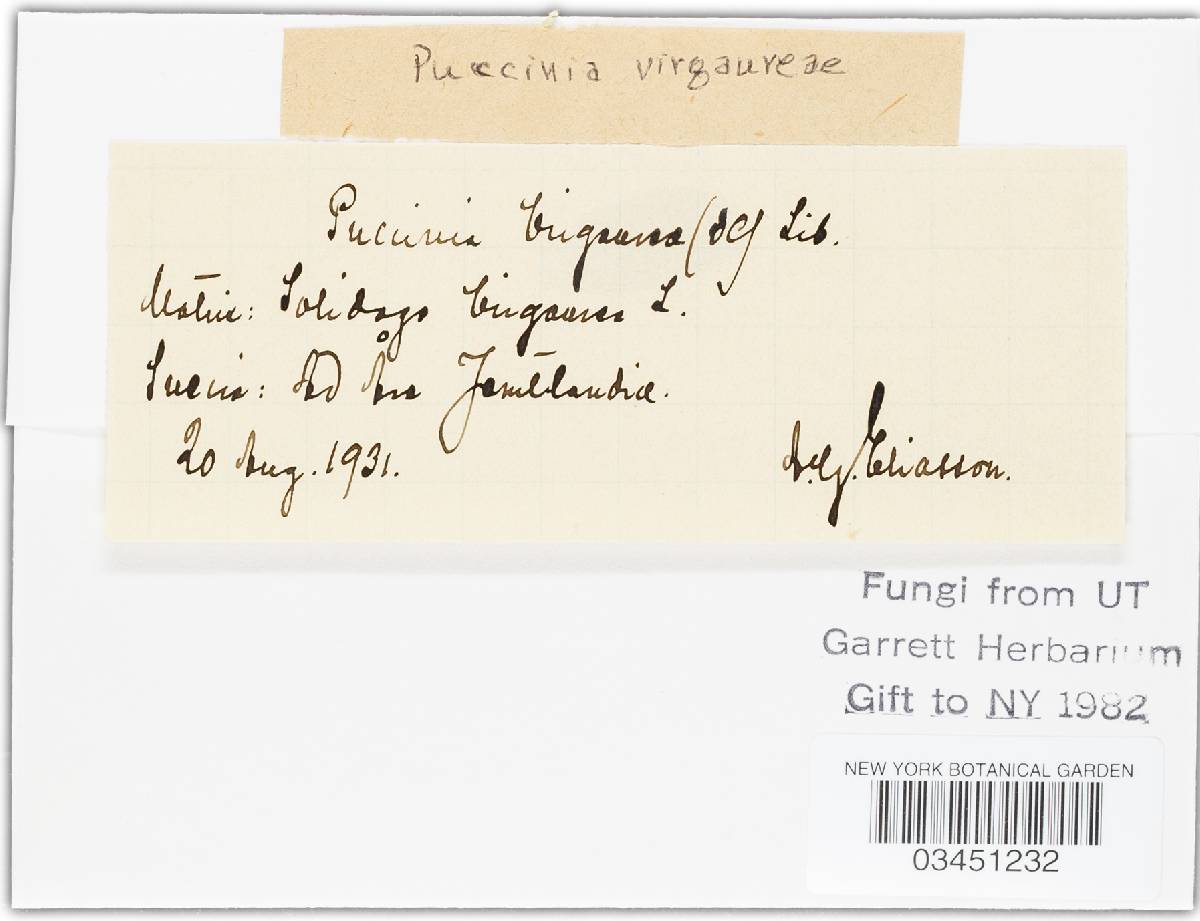 Puccinia virgaureae
Puccinia Virgaureæ (DC) Lib.
Matrix: Solidago Virgaurea L.
Suecia: Ad Åre Jemtlandiæ.
20 Aug. 1931.
A.G. Eliasson.
Fungi from UT
Garrett Herbarium
Gift to NY 1982
NEW YORK BOTANICAL GARDEN
03451232